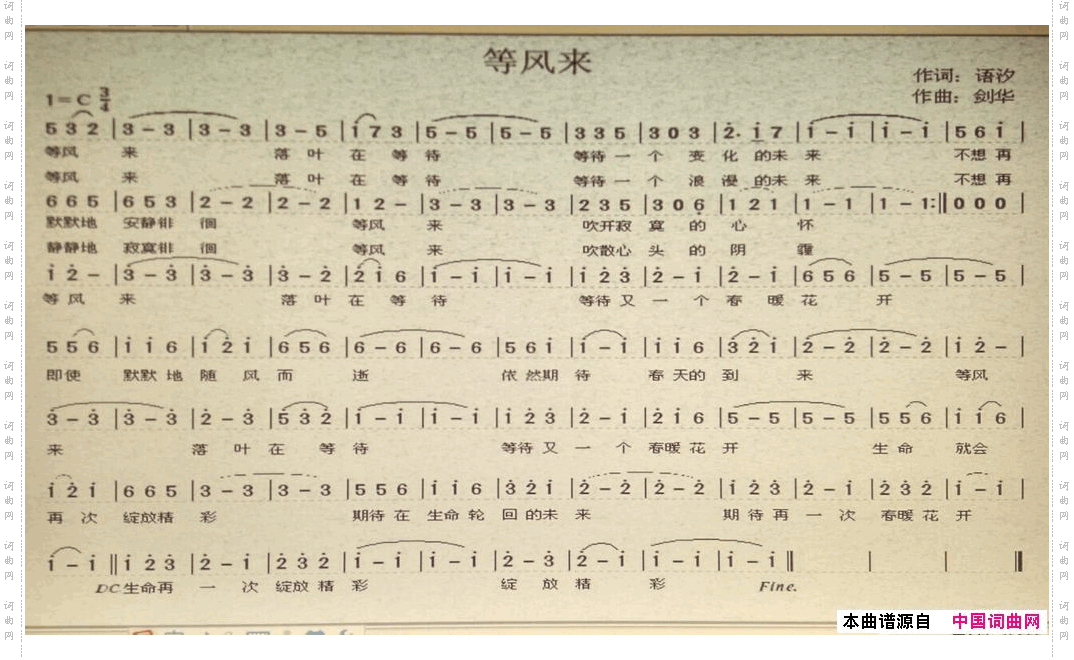 等风来
作词：语汐
作曲：剑华
1=C 3/4
5 3 2 | 3 - 3 | 3 - 3 | 3 - 5 | i 7 3 | 5 - 5 | 5 - 5 | 3 3 5 | 3 0 3 | 2̇· i 7 | i - i | i - i | 5 6 i |
等风 来 落 叶 在 等 待 等待 一 个 变 化 的未 来 不想 再
等风 来 落 叶 在 等 待 等待 一 个 浪 漫 的未 来 不想 再
6 6 5 | 6 5 3 | 2 - 2 | 2 - 2 | 1 2 - | 3 - 3 | 3 - 3 | 2 3 5 | 3 0 6̣ | 1 2 1 | 1 - 1 | 1 - 1 :‖ 0 0 0 |
默默地 安静徘 徊 等风 来 吹开寂 寞 的 心 怀
静静地 寂寞徘 徊 等风 来 吹散心 头 的 阴 霾
i 2̇ - | 3̇ - 3̇ | 3̇ - 3̇ | 3̇ - 2̇ | 2̇ i 6 | i - i | i - i | i 2̇ 3̇ | 2̇ - i | 2̇ - i | 6 5 6 | 5 - 5 | 5 - 5 |
等 风 来 落 叶 在 等 待 等待 又 一 个 春 暖 花 开
5 5 6 | i i 6 | i 2̇ i | 6 5 6 | 6 - 6 | 6 - 6 | 5 6 i | i - i | i i 6 | 3̇ 2̇ i | 2̇ - 2̇ | 2̇ - 2̇ | i 2̇ - |
即使 默默 地 随 风 而 逝 依 然期 待 春 天的 到 来 等风
3̇ - 3̇ | 3̇ - 3̇ | 2̇ - 3̇ | 5̇ 3̇ 2̇ | i - i | i - i | i 2̇ 3̇ | 2̇ - i | 2̇ i 6 | 5 - 5 | 5 - 5 | 5 5 6 | i i 6 |
来 落 叶 在 等 待 等待 又 一 个 春暖 花 开 生 命 就会
i 2̇ i | 6 6 5 | 3 - 3 | 3 - 3 | 5 5 6 | i i 6 | 3̇ 2̇ i | 2̇ - 2̇ | 2̇ - 2̇ | i 2̇ 3̇ | 2̇ - i | 2̇ 3̇ 2̇ | i - i |
再 次 绽放精 彩 期待 在 生命 轮 回 的未 来 期 待 再 一 次 春暖 花 开
i - i ‖ i 2̇ 3̇ | 2̇ - i | 2̇ 3̇ 2̇ | i - i | i - i | 2̇ - 3̇ | 2̇ - i | i - i | i - i ‖
DC 生命再 一 次 绽放 精 彩 绽 放 精 彩 Fine.
本曲谱源自 中国词曲网